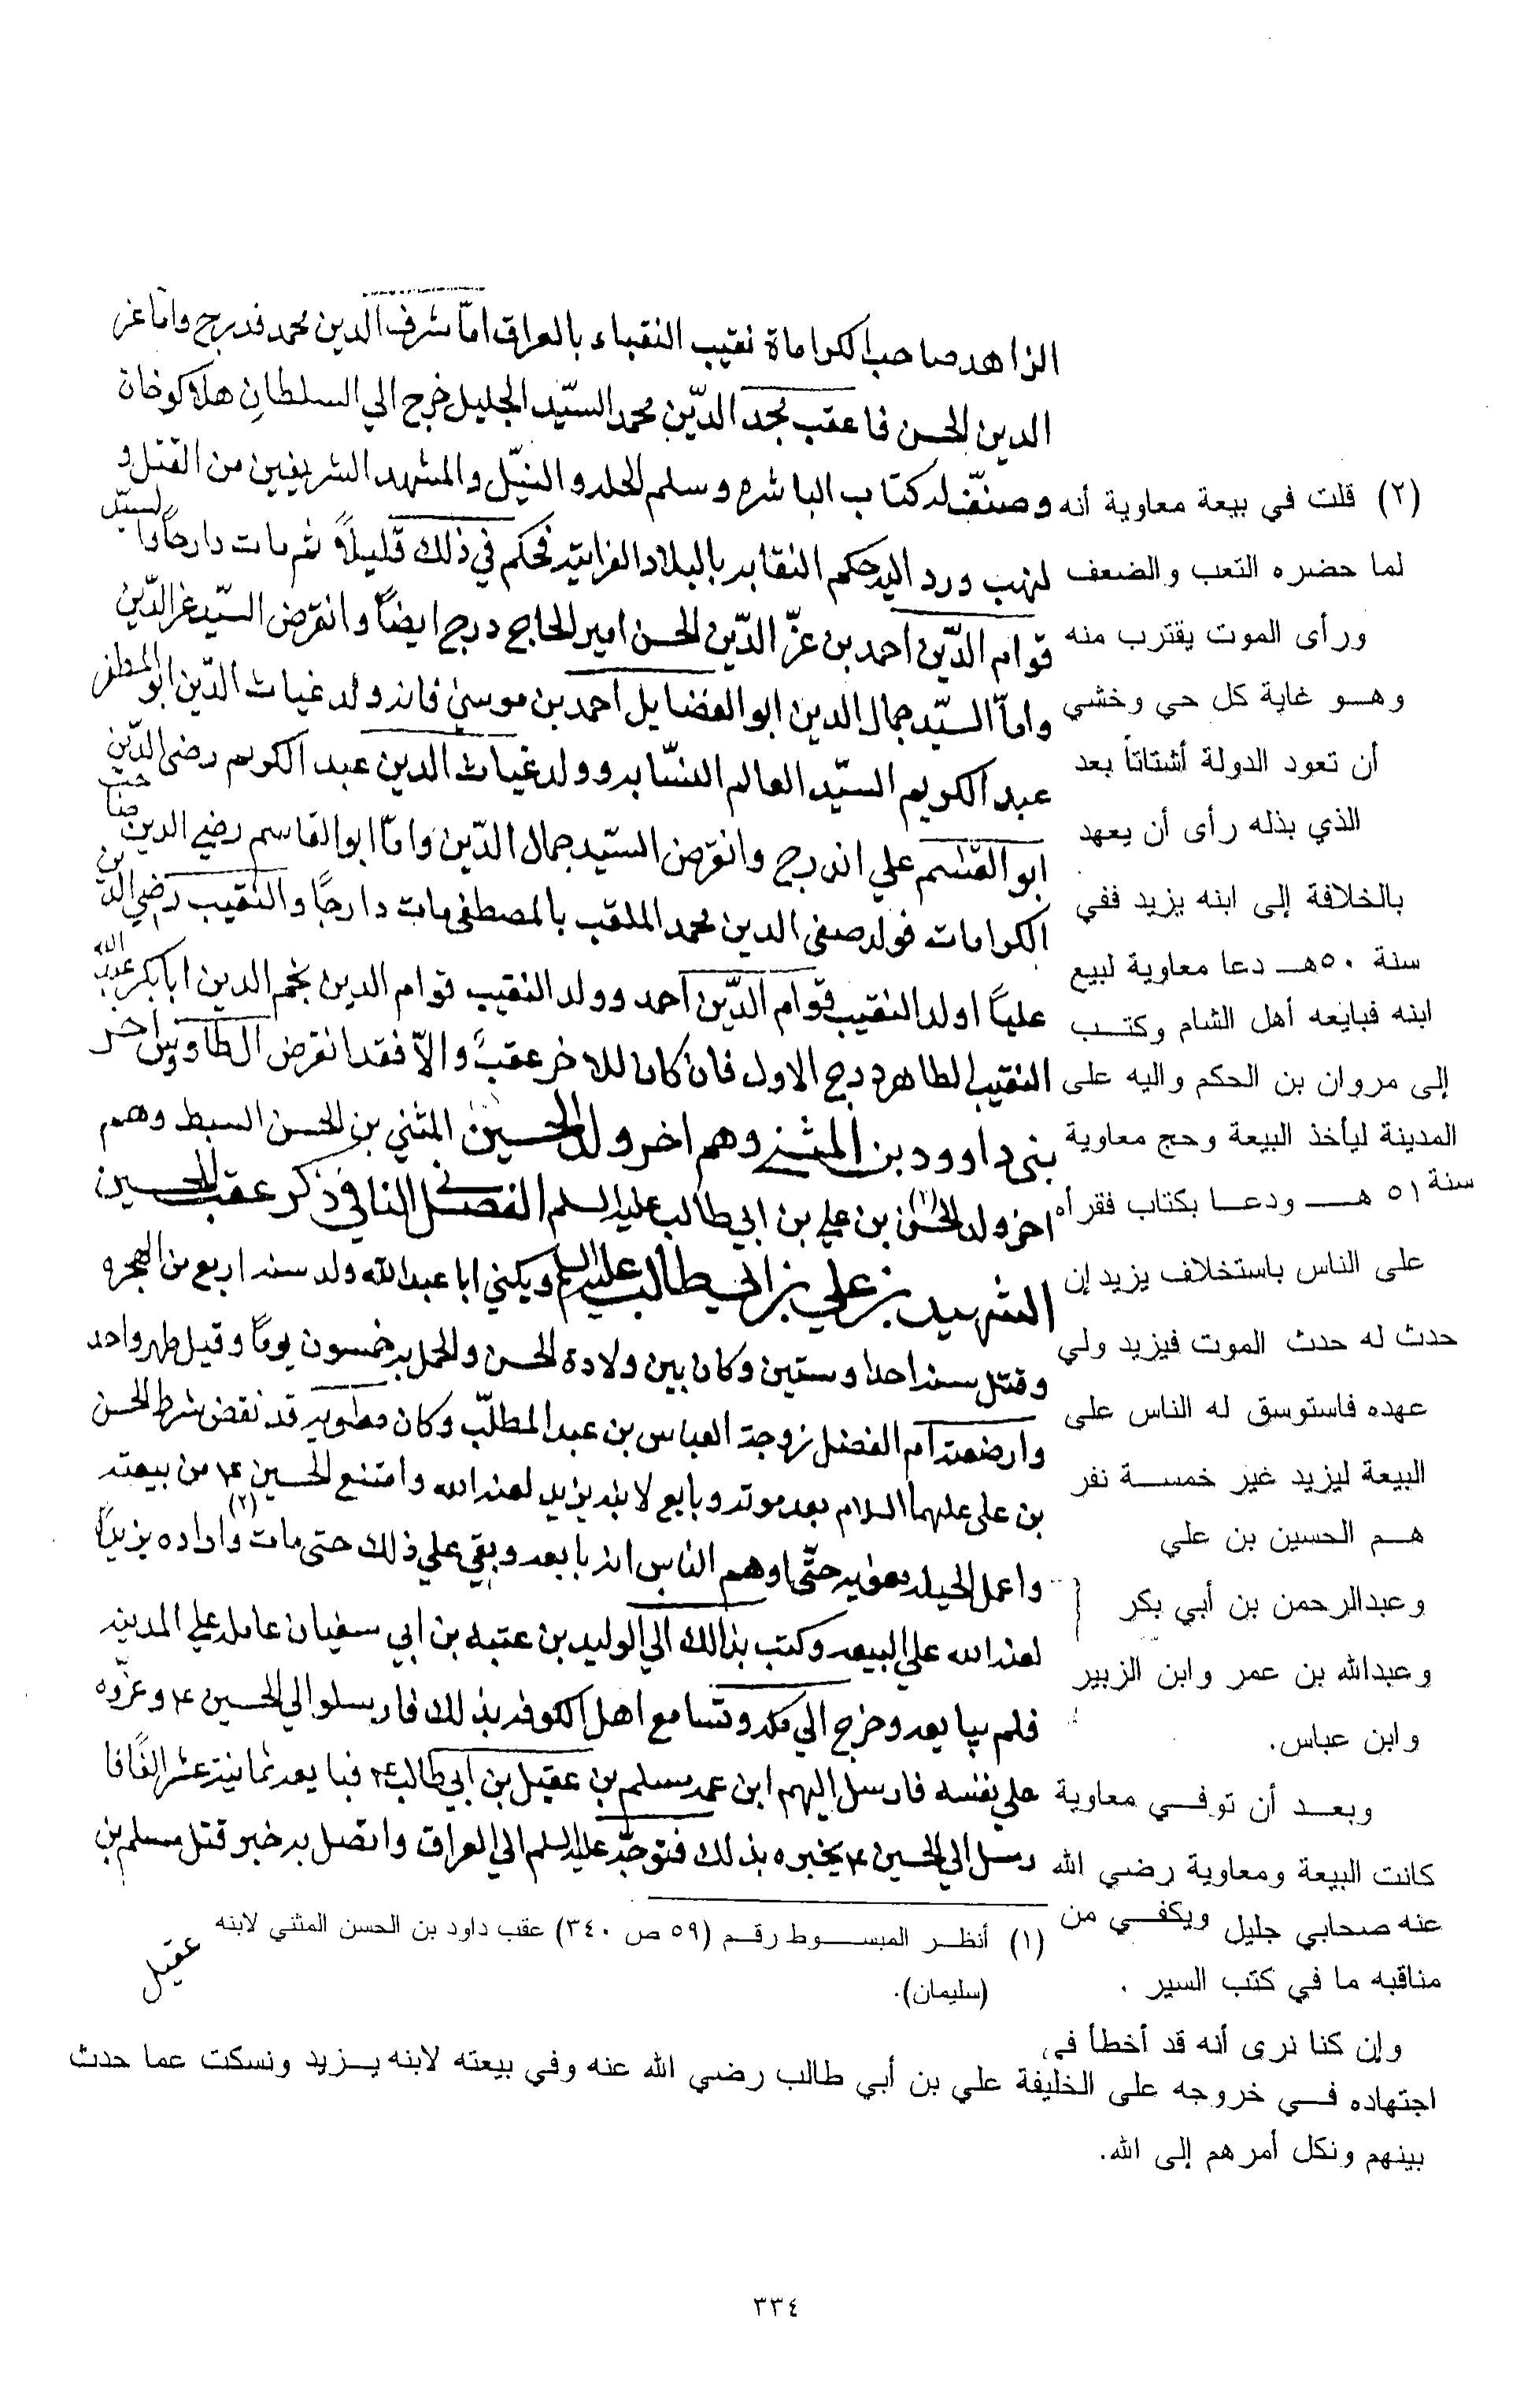 الزاهد صاحب الكراماة نقيب النقباء بالعراق اما شرف الدين محمد فدرج واما عز
الدين الحسن فاعقب مجد الدين محمد السيد الجليل خرج الي السلطان هلاكوخان
وصنف له كتاب البشاره وسلم الحله والنيل والمشهد الشريفين من القتل و
لنهب ورد اليه حكم النقابه بالبلاد الفراتيه فحكم في ذلك قليلاً ثم مات دارجاً والسيد
قوام الدين احمد بن عز الدين الحسن امير الحاج درج ايضاً وانقرض السيد عز الدين
واما السيد جمال الدين ابو الفضايل احمد بن موسي فانه ولد غياث الدين ابو المظفر
عبد الكريم السيد العالم النسابه وولد غياث الدين عبد الكريم رضي الدين
ابو القسم علي انه درج وانقرض السيد جمال الدين واما ابو القاسم رضي الدين صاحب
الكرامات فولد صفي الدين محمد الملقب بالمصطفي مات دارجاً والنقيب رضي الدين
علياً اولد النقيب قوام الدين احمد وولد النقيب قوام الدين نجم الدين ابا بكر عبد الله
النقيب الطاهر درج الاول فان كان للاخر عقب والا فقد انقرض الطاووس اخر
بني داوود بن المثني وهم اخر ولد الحسين المثني بن الحسن السبط وهم
اخر ولد الحسن (١) بن علي بن ابي طالب عليه السلم الفصل الثاني في ذكر عقب الحسين
الشهيد بن علي بن ابي طالب عليه السلم ويكني ابا عبد الله ولد سنه اربع من الهجره
وقتل سنه احدا وستين وكان بين ولادة الحسن والحمل به خمسون يوماً وقيل طهر واحد
وارضعته ام الفضل زوجة العباس بن عبد المطلب وكان معويه قد نقض شرط الحسن
بن علي عليهما السلام بعد موته وبايع لابنه يزيد لعنه الله وامتنع الحسين ع م من بيعته
واعمل الحيله معويه حتى اوهم الناس انه بايعه وبقي علي ذلك حتى مات (٢) واراده يزيد
لعنه الله علي البيعه وكتب بذالك الي الوليد بن عتبه بن ابي سفيان عامله علي المدينه
فلم يبايعه وخرج الي مكه وتسامع اهل الكوفه بذلك فارسلوا الي الحسين ع م وغروه
علي نفسه فارسل اليهم ابن عمه مسلم بن عقيل بن ابي طالب ع م فبايعه ثمانية عشر الفاً فا
رسل الي الحسين ع م يخبره بذلك فتوجه عليه السلم الي العراق واتصل به خبر قتل مسلم بن
عقيل
(١) أنظر المبسوط رقم (٥٩ ص ٣٤٠) عقب داود بن الحسن المثنى لابنه
(سليمان).
(٢) قلت في بيعة معاوية أنه
لما حضره التعب والضعف
ورأى الموت يقترب منه
وهو غاية كل حي وخشي
أن تعود الدولة أشتاتاً بعد
الذي بذله رأى أن يعهد
بالخلافة إلى ابنه يزيد ففي
سنة ٥٠هـ دعا معاوية لبيع
ابنه فبايعه أهل الشام وكتب
إلى مروان بن الحكم واليه على
المدينة ليأخذ البيعة وحج معاوية
سنة ٥١ هـ ودعا بكتاب فقرأه
على الناس باستخلاف يزيد إن
حدث له حدث الموت فيزيد ولي
عهده فاستوسق له الناس على
البيعة ليزيد غير خمسة نفر
هم الحسين بن علي
وعبدالرحمن بن أبي بكر
وعبدالله بن عمر وابن الزبير
وابن عباس.
وبعد أن توفي معاوية
كانت البيعة ومعاوية رضي الله
عنه صحابي جليل ويكفي من
مناقبه ما في كتب السير .
وإن كنا نرى أنه قد أخطأ في
اجتهاده في خروجه على الخليفة علي بن أبي طالب رضي الله عنه وفي بيعته لابنه يزيد ونسكت عما حدث
بينهم ونكل أمرهم إلى الله.
٣٣٤